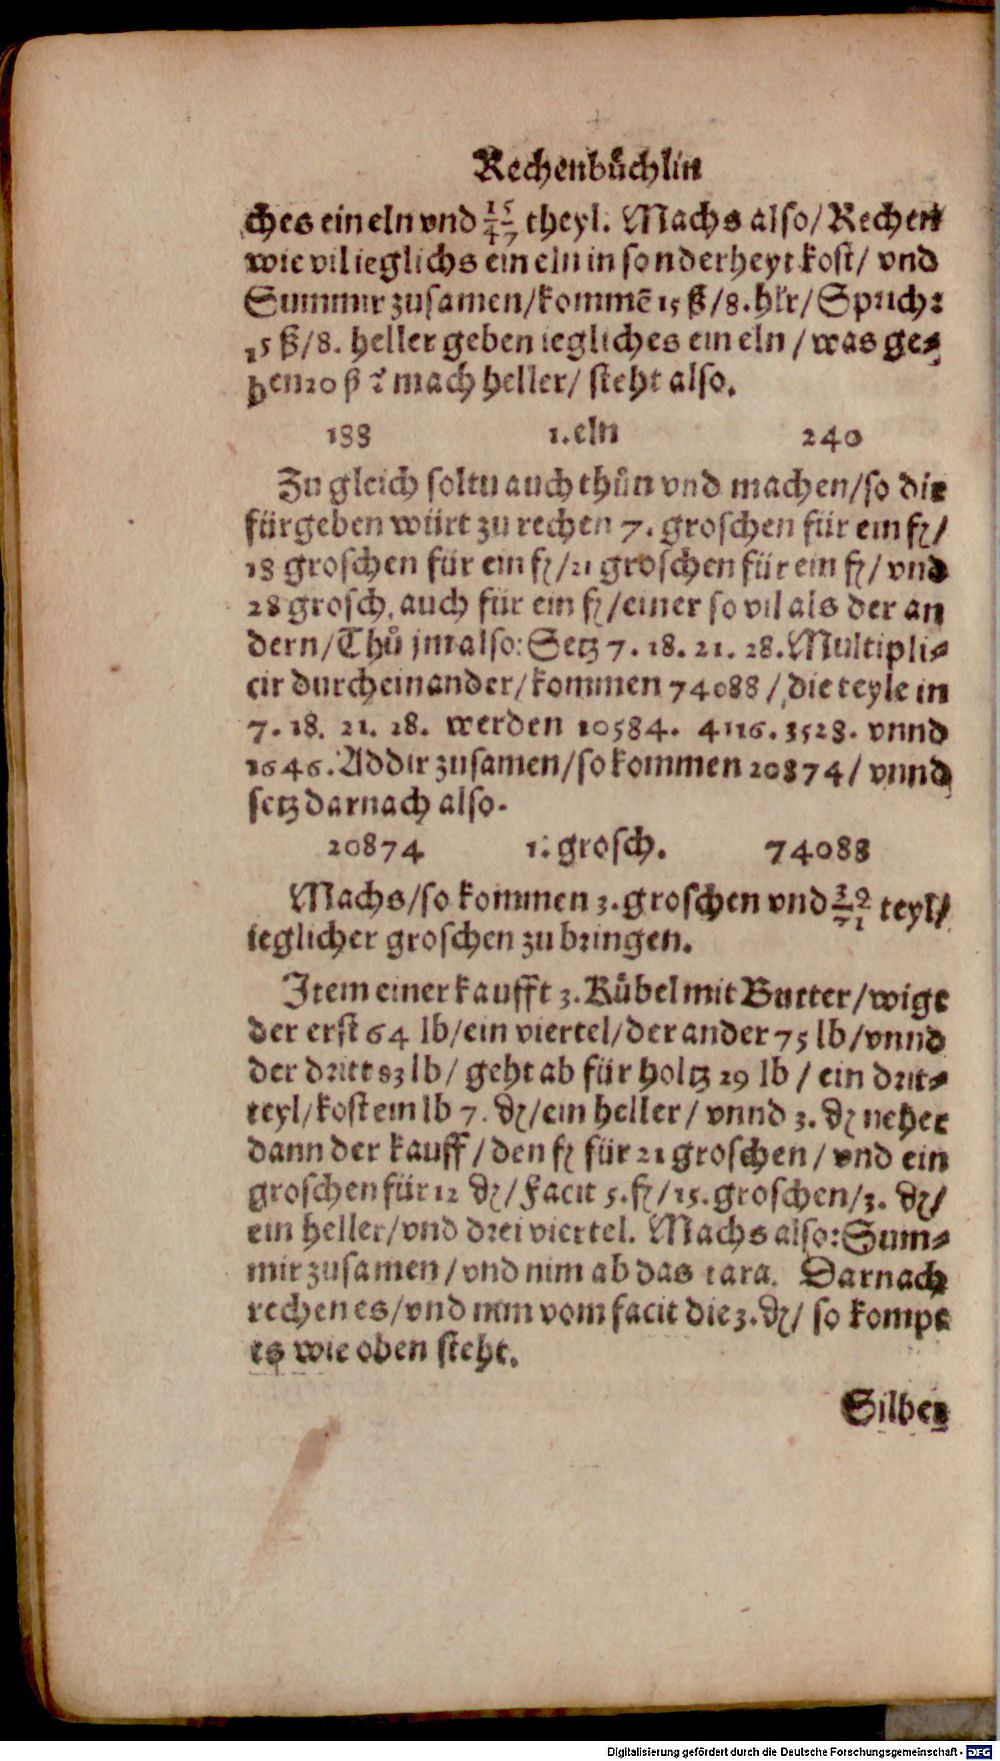 Rechenbůchlin
ches ein eln vnd 15/47 theyl. Machs also/ Rechen
wie vil ieglichs ein eln in sonderheyt kost/ vnd
Summir zusamen/ kommē 15 ß/8. hlr/ Sprich:
15 ß/8. heller geben iegliches ein eln/ was ge⸗
ben 20 ß mach heller/ steht also.
188 1. eln 240
Zu gleich soltu auch thůn vnd machen/ so dir
fürgeben würt zu rechen 7. groschen für ein fl/
18 groschen für ein fl/ 21 groschen für ein fl/ vnd
28 grosch. auch für ein fl/ einer so vil als der an
dern/ Thů jm also: Setz 7. 18. 21. 28. Multipli⸗
cir durch einander/ kommen 74088/ die teyle in
7. 18. 21. 28. werden 10584. 4116. 3528. vnnd
1646. Addir zusamen/ so kommen 20874/ vnnd
setz darnach also.
20874 1. grosch. 74088
Machs/ so kommen 3. groschen vnd 39/71 teyl/
ieglicher groschen zu bringen.
Item einer kaufft 3. Kübel mit Butter/ wigt
der erst 64 lb/ ein viertel/ der ander 75 lb/ vnnd
der dritt 83 lb/ geht ab für holtz 29 lb/ ein drit⸗
teyl/ kost ein lb 7. ₰/ ein heller/ vnnd 3. ₰ neher
dann der kauff/ den fl für 21 groschen/ vnd ein
groschen für 12 ₰/ Facit 5. fl/ 15. groschen/ 3. ₰/
ein heller/ vnd drei viertel. Machs also: Sum⸗
mir zusamen/ vnd nim ab das tara. Darnach
rechen es/ vnd nim vom facit die 3. ₰/ so kompt
es wie oben steht.
Silber
Digitalisierung gefördert durch die Deutsche Forschungsgemeinschaft - DFG